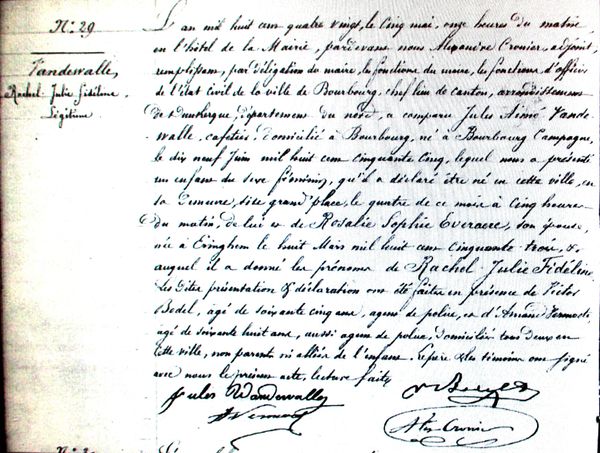 N° 29
Vandewalle,
Rachel-Julie Fidéline
Légitime
L'an mil huit cent quatre vingt, le cinq mai, onze heures du matin,
en l'hôtel de la Mairie, pardevant nous Alexandre Cronier, adjoint
remplissant, par délégation du maire, les fonctions du maire, les fonctions d'officier
de l'état civil de la ville de Bourbourg, chef lieu de canton, arrondissement
de Dunkerque, département du nord, a comparu Jules Aimé Vande-
walle, cafetier, domicilié à Bourbourg, né à Bourbourg Campagne,
le dix neuf Juin mil huit cent cinquante cinq, lequel nous a présenté
un enfant du sexe féminin, qu'il a déclaré être né en cette ville, en
sa demeure, sise grand'place, le quatre de ce mois à cinq heures
du matin, de lui et de Rosalie Sophie Everaere, son épouse,
née à Eringhem le huit Mars mil huit cent cinquante trois, et
auquel il a donné les prénoms de Rachel-Julie Fidéline
les dites présentation & déclaration ont été faites en présence de Victor
Bedel, âgé de soixante cinq ans, agent de police, et d'Amand Vermesch
âgé de soixante huit ans, aussi agent de police, domiciliés tous deux en
cette ville, non parents ni alliés de l'enfant. Le père & les témoins ont signé
avec nous le présent acte, lecture faite
Jules Vandewalle
Alex Cronier